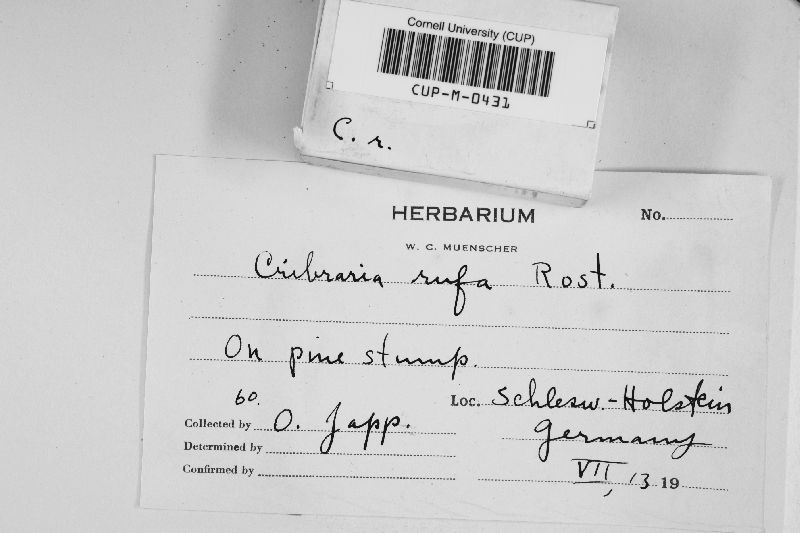 Cornell University (CUP)
CUP-M-0431
C. r.
HERBARIUM
No.
W. C. MUENSCHER
Cribraria rufa Rost.
On pine stump.
60.
Loc. Schlesw.-Holstein
Collected by O. Japp.
Germany
Determined by
Confirmed by
VII, 13 19